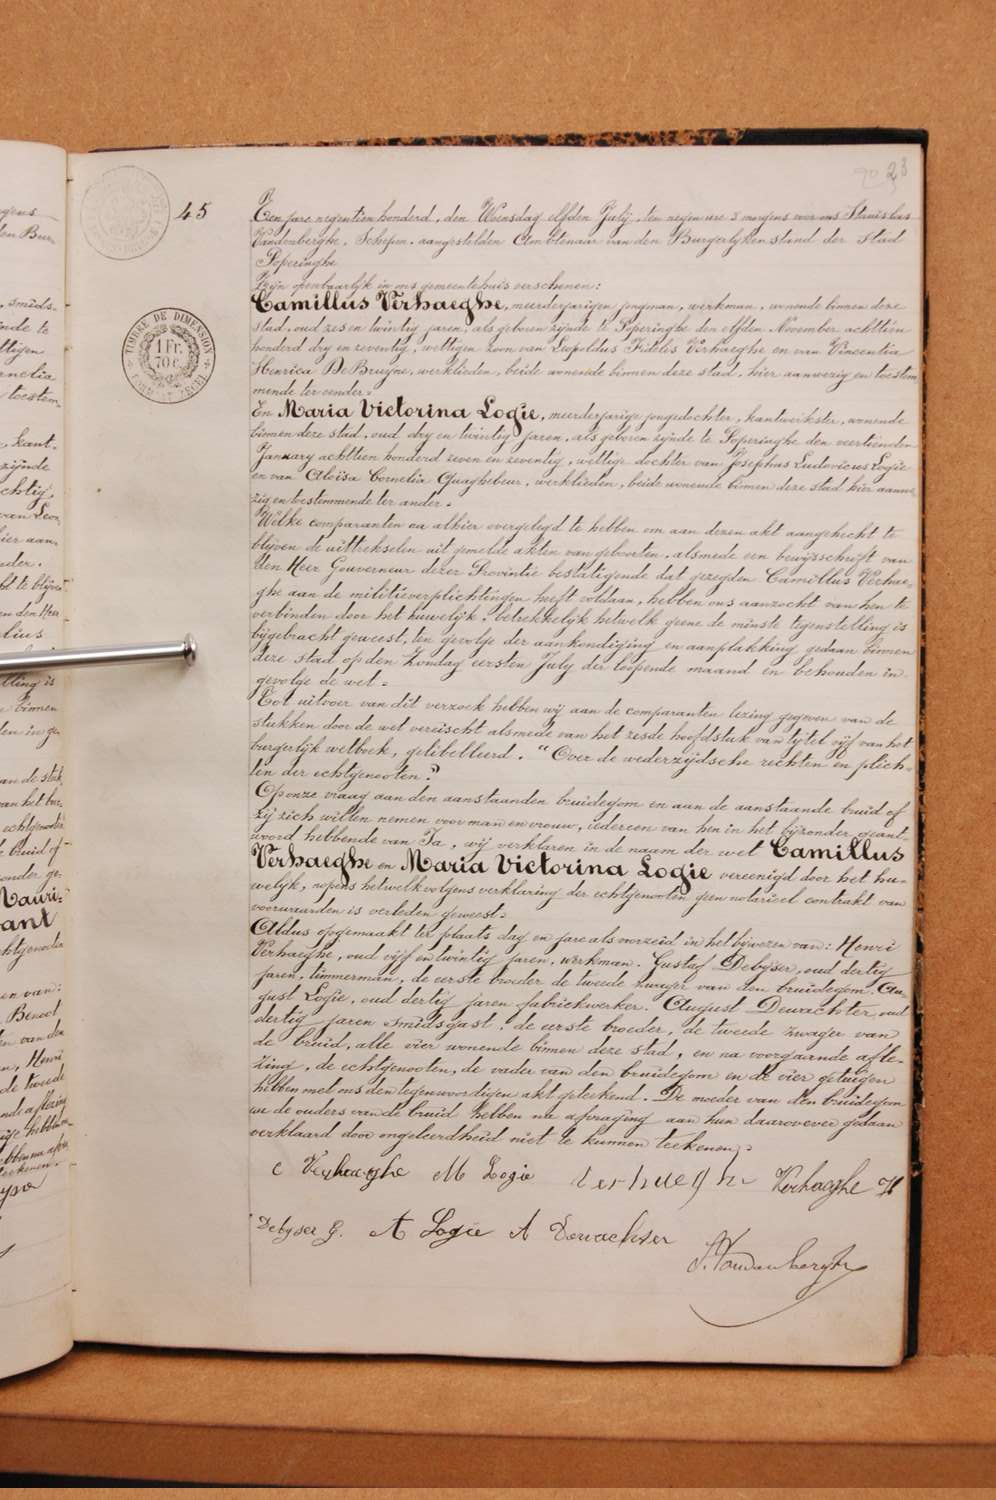 23
45
TIMBRE DE DIMENSION
1 Fr.
70 c.
Een jare negentien honderd, den Woensdag elfden July, ten negen ure 's morgens voor ons Stanislas
Vandenberghe, Schepen-aangestelden Ambtenaar van den Burgerlijken stand der stad
Poperinghe
Zijn openbaarlijk in ons gemeentehuis verschenen:
Camillus Verhaeghe, meerderjarigen jongman, werkman, wonende binnen deze
stad, oud zes en twintig jaren, als geboren zijnde te Poperinghe den elfden November achttien
honderd dry en zeventig, wettigen zoon van Leopoldus Fidelis Verhaeghe en van Vincentia
Henrica DeBruyne, werklieden, beide wonende binnen deze stad, hier aanwezig en toestem
mende ter eender.
En Maria Victorina Logie, meerderjarige jongedochter, kantwerkster, wonende
binnen deze stad, oud dry en twintig jaren, als geboren zijnde te Poperinghe den veertienden
January achttien honderd zeven en zeventig, wettige dochter van Josephus Ludovicus Logie
en van Aloïsa Cornelia Quaghebeur, werklieden, beide wonende binnen deze stad hier aanwe-
zig en toestemmende ter ander.
Welke comparanten na alhier overgelegd te hebben om aan dezen akt aangehecht te
blijven de uittrekselen uit gemelde akten van geboorten, alsmede een bewijsschrift van
den Heer Gouverneur dezer Provintie bestatigende dat gezegden Camillus Verhae-
ghe aan de militieverplichtingen heeft voldaan, hebben ons aanzocht van hen te
verbinden door het huwelijk: betrekkelijk hetwelk geene de minste tegenstelling is
bijgebracht geweest, ten gevolge der aankondiging en aanplakking gedaan binnen
deze stad op den Zondag eersten July der loopende maand en behouden in-
gevolge de wet.
Tot uitvoer van dit verzoek hebben wij aan de comparanten lezing gegeven van de
stukken door de wet vereischt alsmede van het zesde hoofdstuk van tijtel vijf van het
burgerlijk wetboek, gelibelleerd. "Over de wederzijdsche rechten en plich-
ten der echtgenooten."
Op onze vraag aan den aanstaanden bruidegom en aan de aanstaande bruid of
zij zich willen nemen voor man en vrouw, iedereen van hen in het bijzonder geant-
woord hebbende van Ja, wij verklaren in de naam der wet Camillus
Verhaeghe en Maria Victorina Logie vereenigd door het hu-
welijk, nopens hetwelk volgens verklaring der echtgenooten geen notarieel contrakt van
voorwaarden is verleden geweest.
Aldus opgemaakt ter plaats dag en jare als voorzeid in het bijwezen van: Henri
Verhaeghe, oud vijf en twintig jaren, werkman. Gustaf Debyser, oud dertig
jaren, timmerman, de eerste broeder de tweede zwager van den bruidegom, Au-
gust Logie, oud dertig jaren fabriekwerker. August Dewachter, oud
dertig jaren smidsgast: de eerste broeder, de tweede zwager van
de bruid, alle vier wonende binnen deze stad, en na voorgaande afle-
zing, de echtgenooten, de vader van den bruidegom en de vier getuigen
hebben met ons den tegenwoordigen akt geteekend. De moeder van den bruidegom
en de ouders van de bruid hebben na afvraging aan hun daarover gedaan
verklaard door ongeleerdheid niet te kunnen teekenen.
C Verhaeghe M Logie Verhaeghe Verhaeghe H
Debyser G. A Logie A Dewachter
S. Vandenberghe